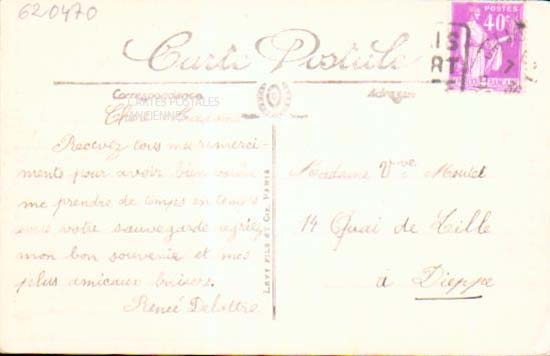 620470
Carte Postale
POSTES
40c
IS
RT
7
Correspondance
Adresse
CARTES POSTALES
ANCIENNES
Recevez tous mes remerci-
ments pour avoir bien voulu
me prendre de temps en temps
sous votre sauvegarde
mon bon souvenir et mes
plus amicaux baisers.
Renée Delattre
LEVY FILS ET CIE, PARIS
Madame Vve Moulet
14 Quai de Lille
à Dieppe